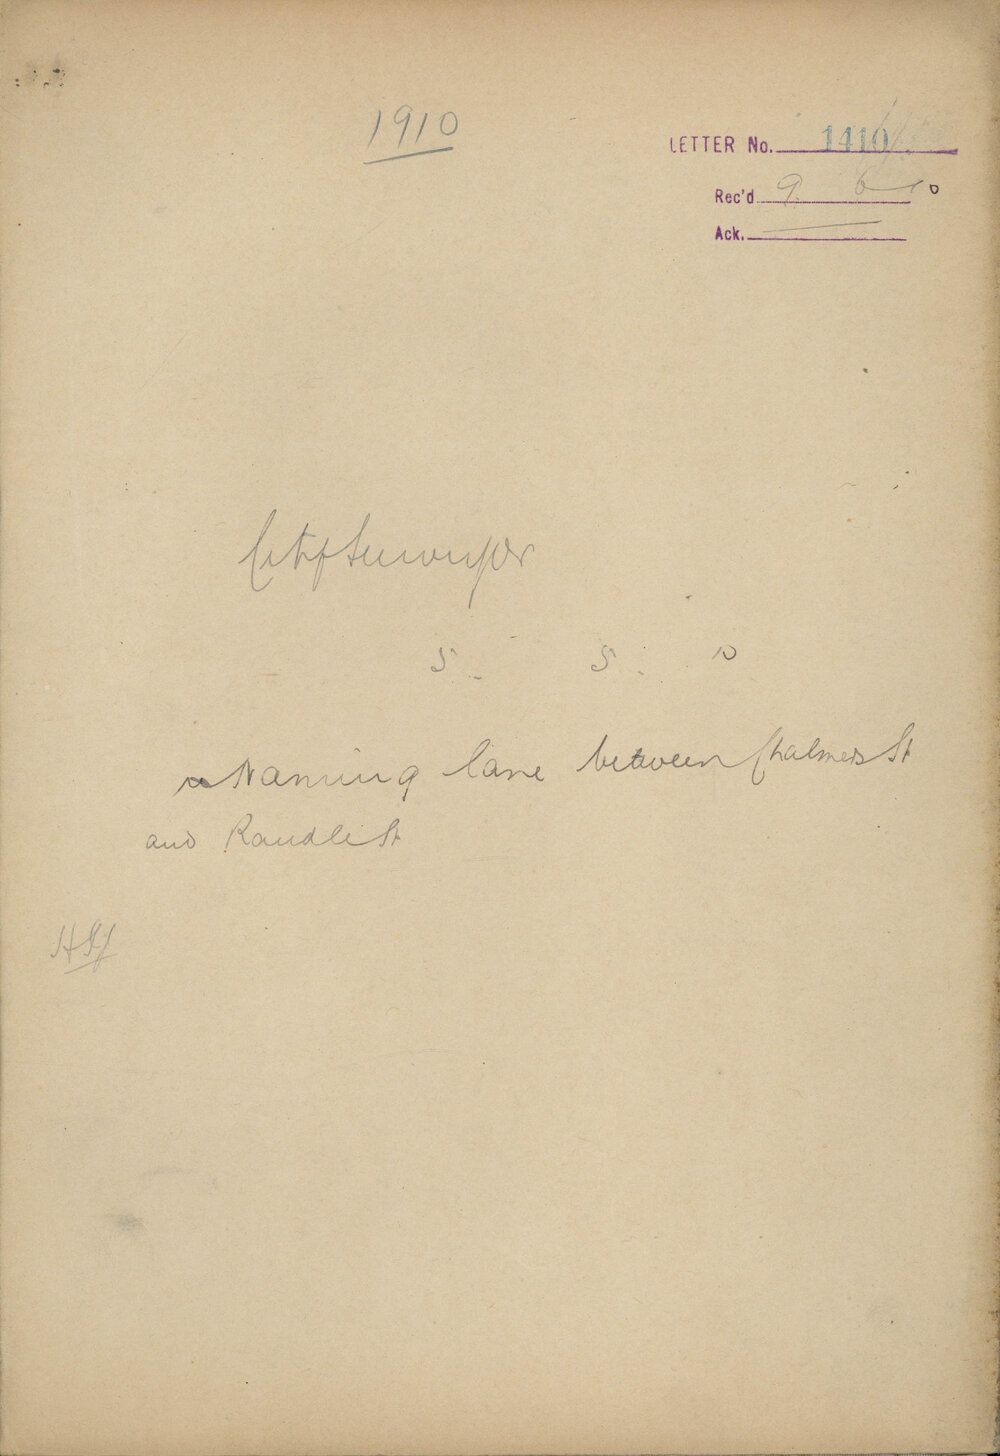 1910
LETTER No. 1410
Rec'd 9. 6 10
Ack.
City Surveyor
5. 5. 10
re Naming lane between Chalmers St
and Randle St